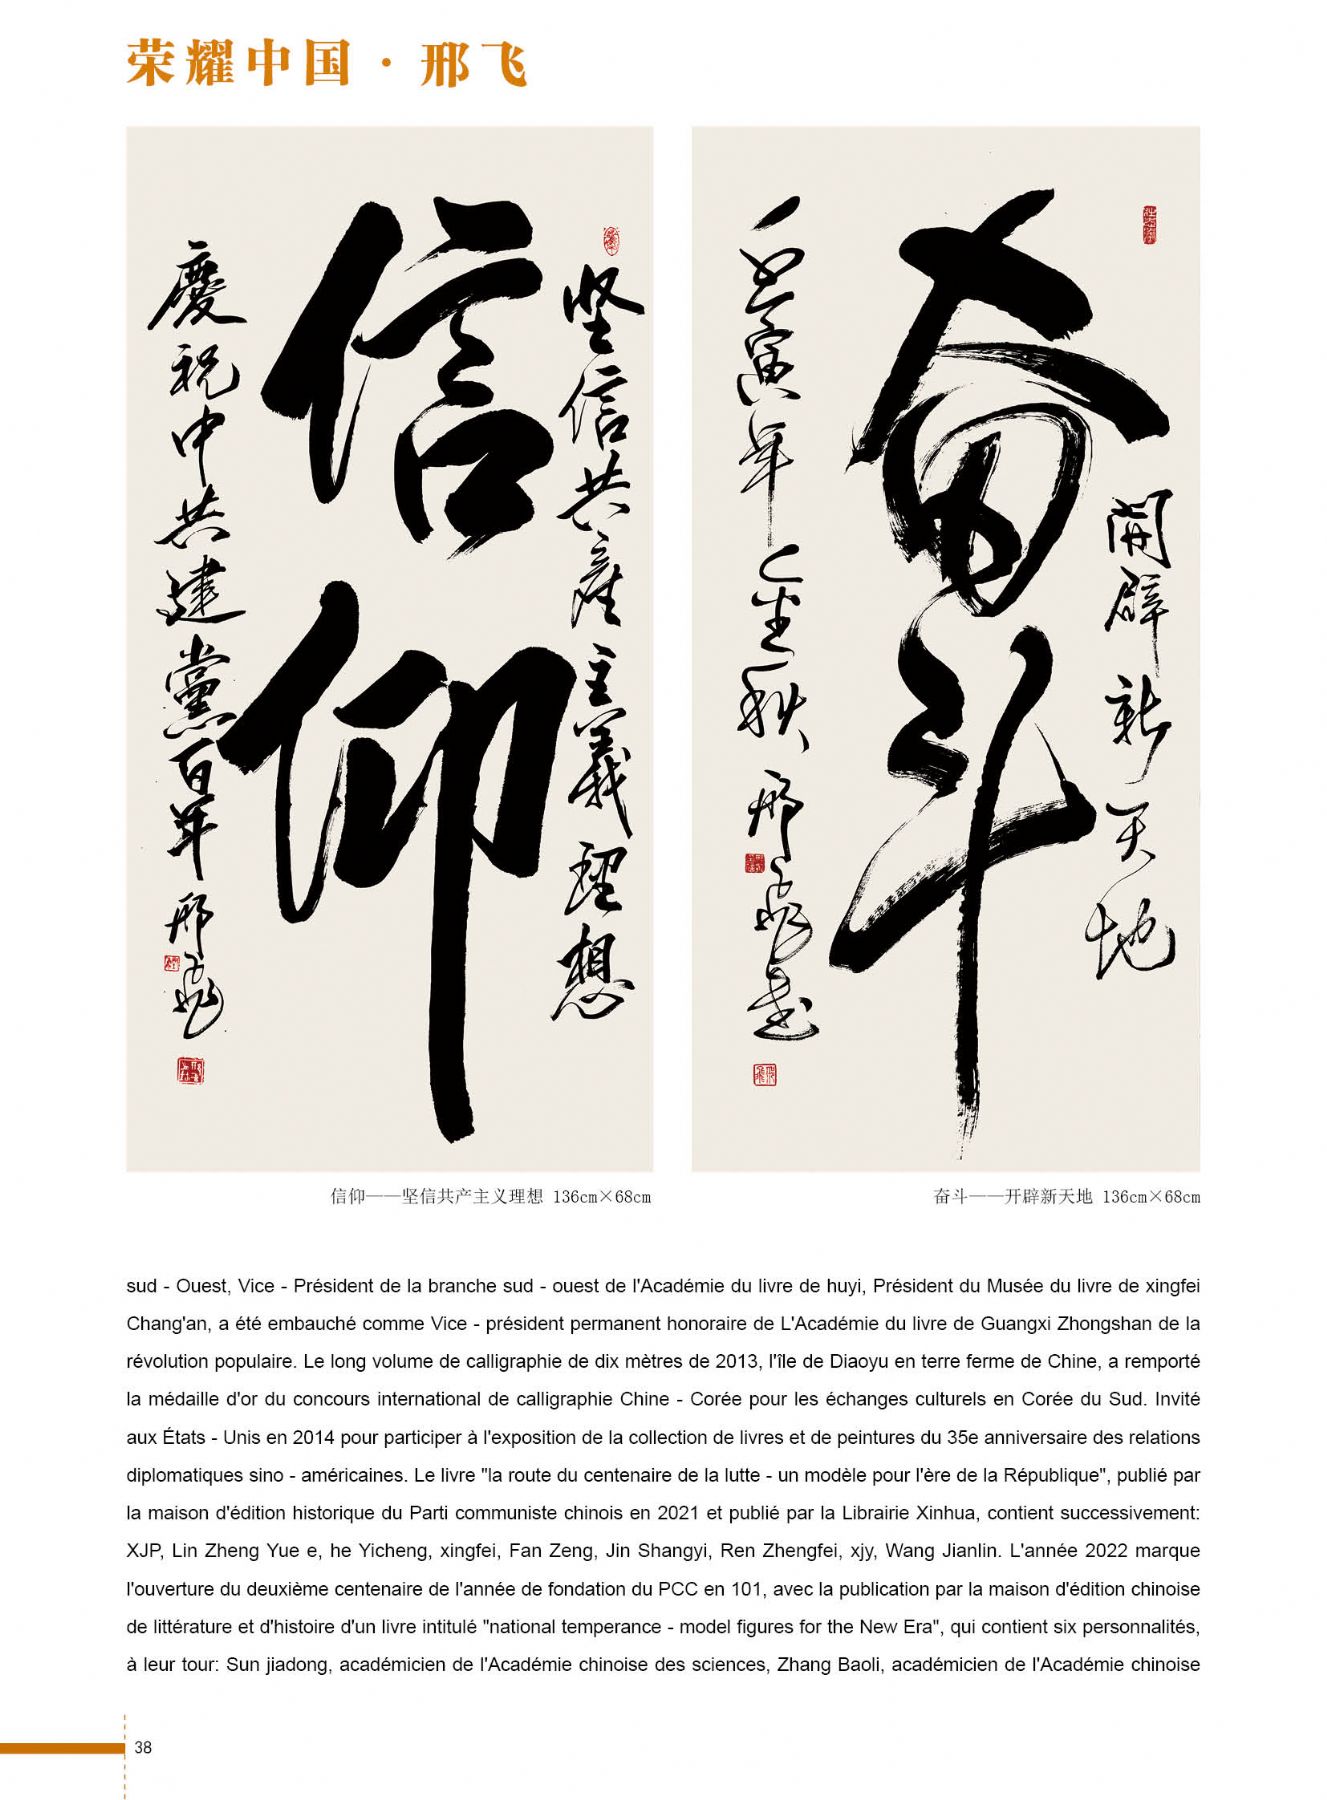 荣耀中国·邢飞
坚信共产主義理想
信仰
慶祝中共建黨百年 邢飛
開辟新天地
奋斗
壬寅年 金秋 邢飛书
信仰——坚信共产主义理想 136cm×68cm
奋斗——开辟新天地 136cm×68cm
sud - Ouest, Vice - Président de la branche sud - ouest de l'Académie du livre de huyi, Président du Musée du livre de xingfei
Chang'an, a été embauché comme Vice - président permanent honoraire de L'Académie du livre de Guangxi Zhongshan de la
révolution populaire. Le long volume de calligraphie de dix mètres de 2013, l'île de Diaoyu en terre ferme de Chine, a remporté
la médaille d'or du concours international de calligraphie Chine - Corée pour les échanges culturels en Corée du Sud. Invité
aux États - Unis en 2014 pour participer à l'exposition de la collection de livres et de peintures du 35e anniversaire des relations
diplomatiques sino - américaines. Le livre "la route du centenaire de la lutte - un modèle pour l'ère de la République", publié par
la maison d'édition historique du Parti communiste chinois en 2021 et publié par la Librairie Xinhua, contient successivement:
XJP, Lin Zheng Yue e, he Yicheng, xingfei, Fan Zeng, Jin Shangyi, Ren Zhengfei, xjy, Wang Jianlin. L'année 2022 marque
l'ouverture du deuxième centenaire de l'année de fondation du PCC en 101, avec la publication par la maison d'édition chinoise
de littérature et d'histoire d'un livre intitulé "national temperance - model figures for the New Era", qui contient six personnalités,
à leur tour: Sun jiadong, académicien de l'Académie chinoise des sciences, Zhang Baoli, académicien de l'Académie chinoise
38